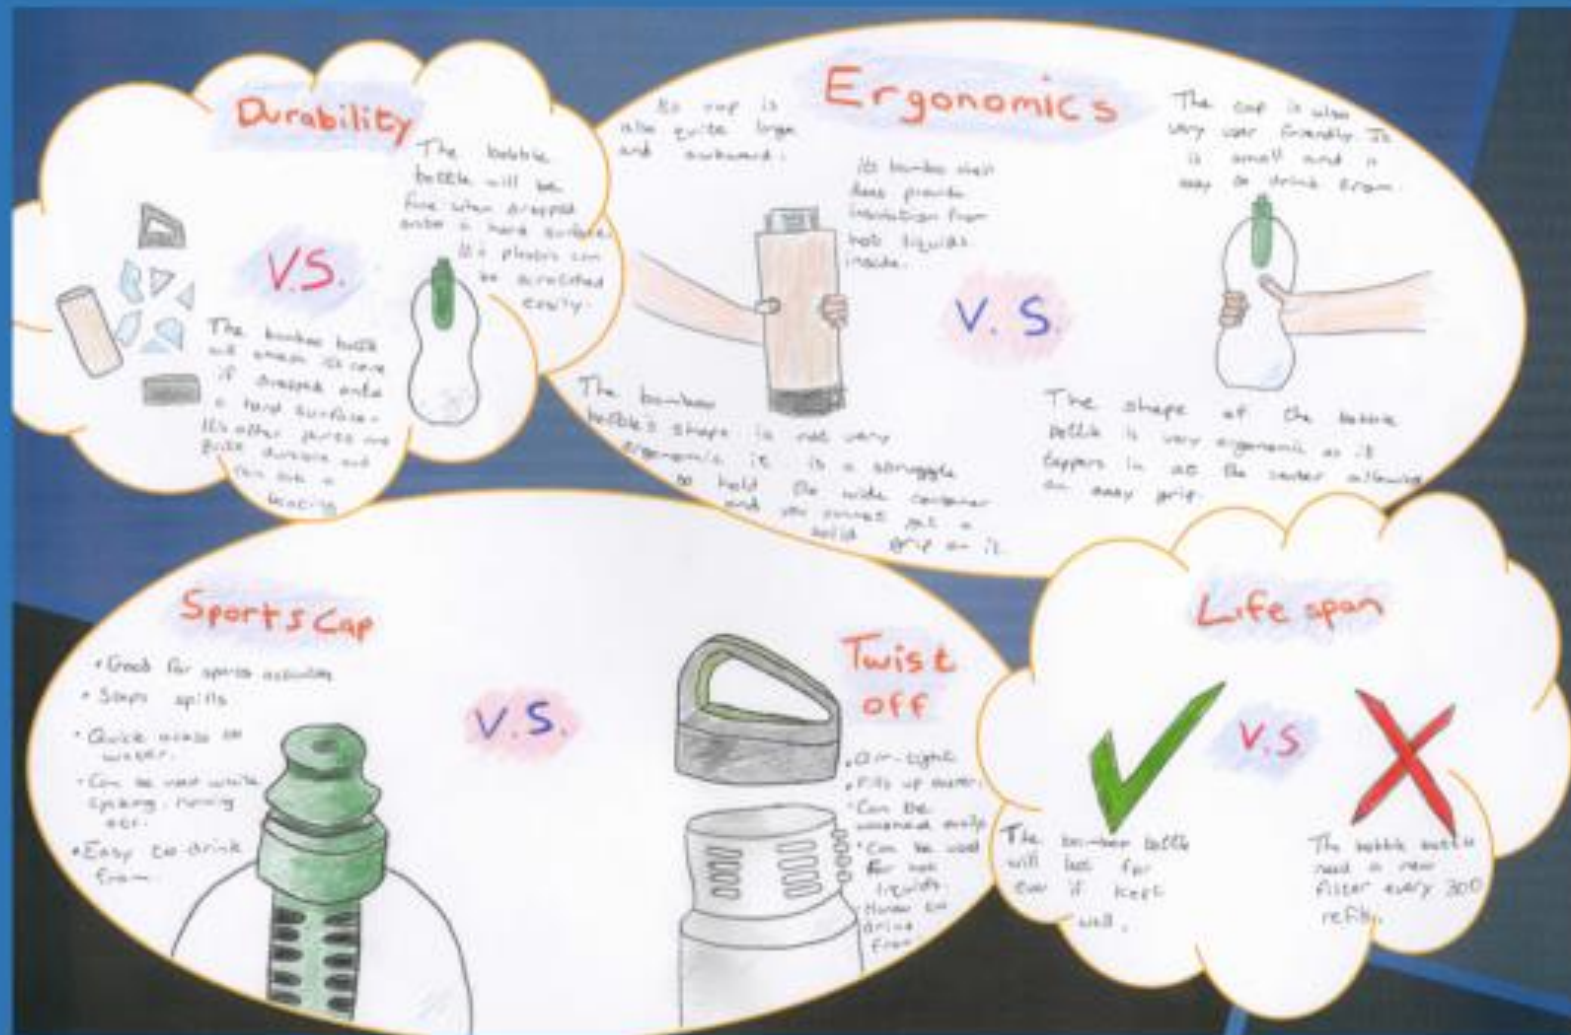 Durability
The bobble
bottle will be
fine when dropped
onto a hard surface.
It's plastic can
be scratched
easily.
V.S.
The bamboo bottle
will smash its core
if dropped onto
a hard surface.
It's other parts are
quite durable and
can take a
beating
Ergonomics
Its cap is
also quite large
and awkward.
its bamboo shell
does provide
insulation from
hot liquids
inside.
The cap is also
very user friendly. It
is small and is
easy to drink from.
V.S.
The bamboo
bottle's shape is not very
ergonomic it is a struggle
to hold the wide container
and you cannot get a
solid grip on it.
The shape of the bobble
bottle is very ergonomic as it
tappers in at the center allowing
an easy grip.
Sports Cap
• Good for sports activities
• Stops spills
• Quick access to
water.
• Can be used while
cycling, running
etc.
• Easy to drink
from.
V.S.
Twist
off
• Air-tight
• Fills up easier.
• Can be
washed easily
• Can be used
for hot
liquids.
Harder to
drink
from.
Life span
V.S
The bamboo bottle
will last for
ever if kept
well.
The bobble bottle
need a new
filter every 300
refills.